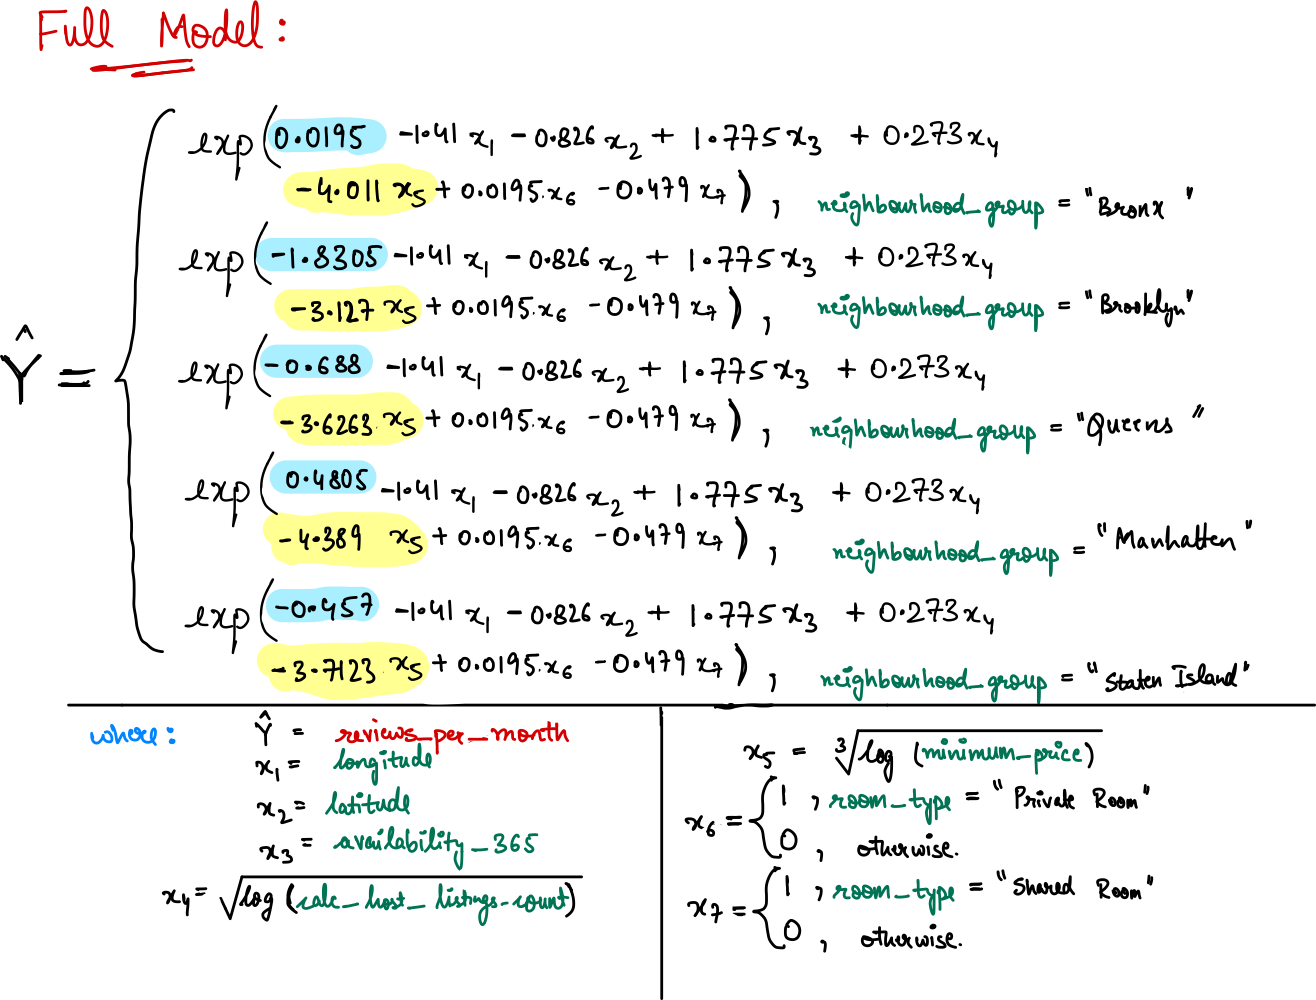 Full Model:
exp(0.0195 -1.41 x₁ - 0.826 x₂ + 1.775 x₃ + 0.273 x₄
-4.011 x₅ + 0.0195.x₆ -0.479 x₇), neighbourhood_group = "Bronx"
exp(-1.8305 -1.41 x₁ - 0.826 x₂ + 1.775 x₃ + 0.273 x₄
-3.127 x₅ + 0.0195.x₆ -0.479 x₇), neighbourhood_group = "Brooklyn"
Ŷ =
exp(-0.688 -1.41 x₁ - 0.826 x₂ + 1.775 x₃ + 0.273 x₄
-3.6263 x₅ + 0.0195.x₆ -0.479 x₇), neighbourhood_group = "Queens"
exp(0.4805 -1.41 x₁ - 0.826 x₂ + 1.775 x₃ + 0.273 x₄
-4.389 x₅ + 0.0195.x₆ -0.479 x₇), neighbourhood_group = "Manhatten"
exp(-0.457 -1.41 x₁ - 0.826 x₂ + 1.775 x₃ + 0.273 x₄
-3.7123 x₅ + 0.0195.x₆ -0.479 x₇), neighbourhood_group = "Staten Island"
where: Ŷ = reviews_per_month
x₁ = longitude
x₂ = latitude
x₃ = availability_365
x₄ = √log (calc_host_listings-count)
x₅ = ∛log (minimum_price)
x₆ = { 1, room_type = "Private Room"
0, otherwise.
x₇ = { 1, room_type = "Shared Room"
0, otherwise.